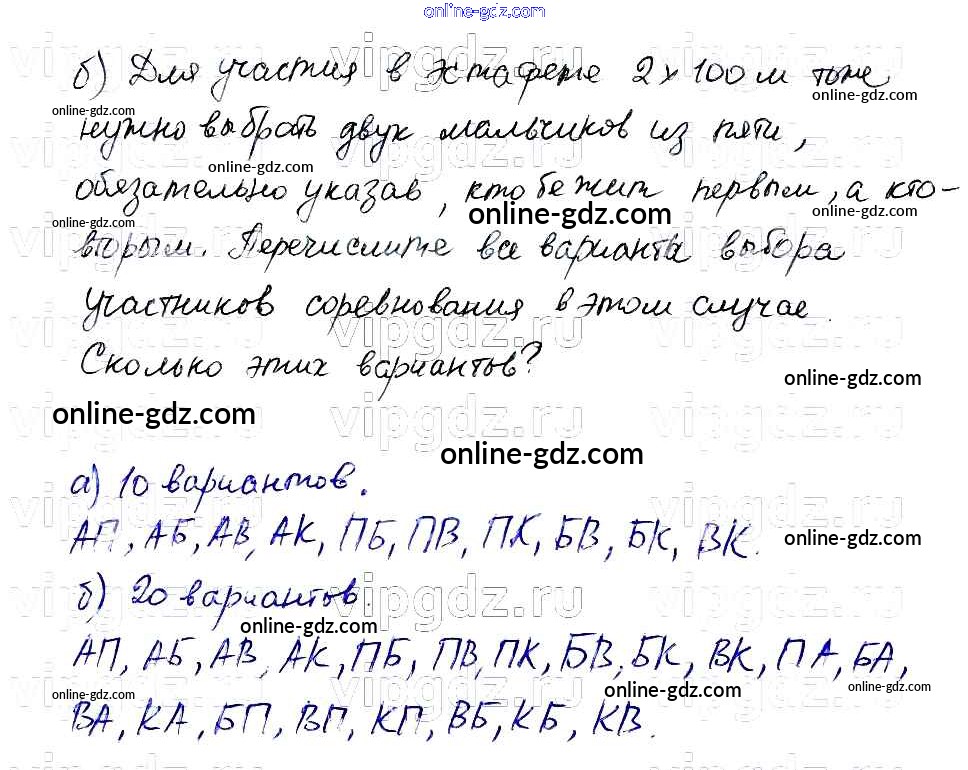 online-gdz.com
б) Для участия в эстафете 2 х 100 м тоже
online-gdz.com
online-gdz.com
нужно выбрать двух мальчиков из пяти,
online-gdz.com
обязательно указав, кто бежит первым, а кто-
online-gdz.com
online-gdz.com
online-gdz.com
вторым. Перечислите все варианты выбора
участников соревнования в этом случае.
Сколько этих вариантов?
online-gdz.com
online-gdz.com
online-gdz.com
а) 10 вариантов.
АП, АБ, АВ, АК, ПБ, ПВ, ПК, БВ, БК, ВК.
online-gdz.com
online-gdz.com
б) 20 вариантов.
online-gdz.com
АП, АБ, АВ, АК, ПБ, ПВ, ПК, БВ, БК, ВК, ПА, БА,
online-gdz.com
online-gdz.com
online-gdz.com
ВА, КА, БП, ВП, КП, ВБ, КБ, КВ.
vipgdz.ru